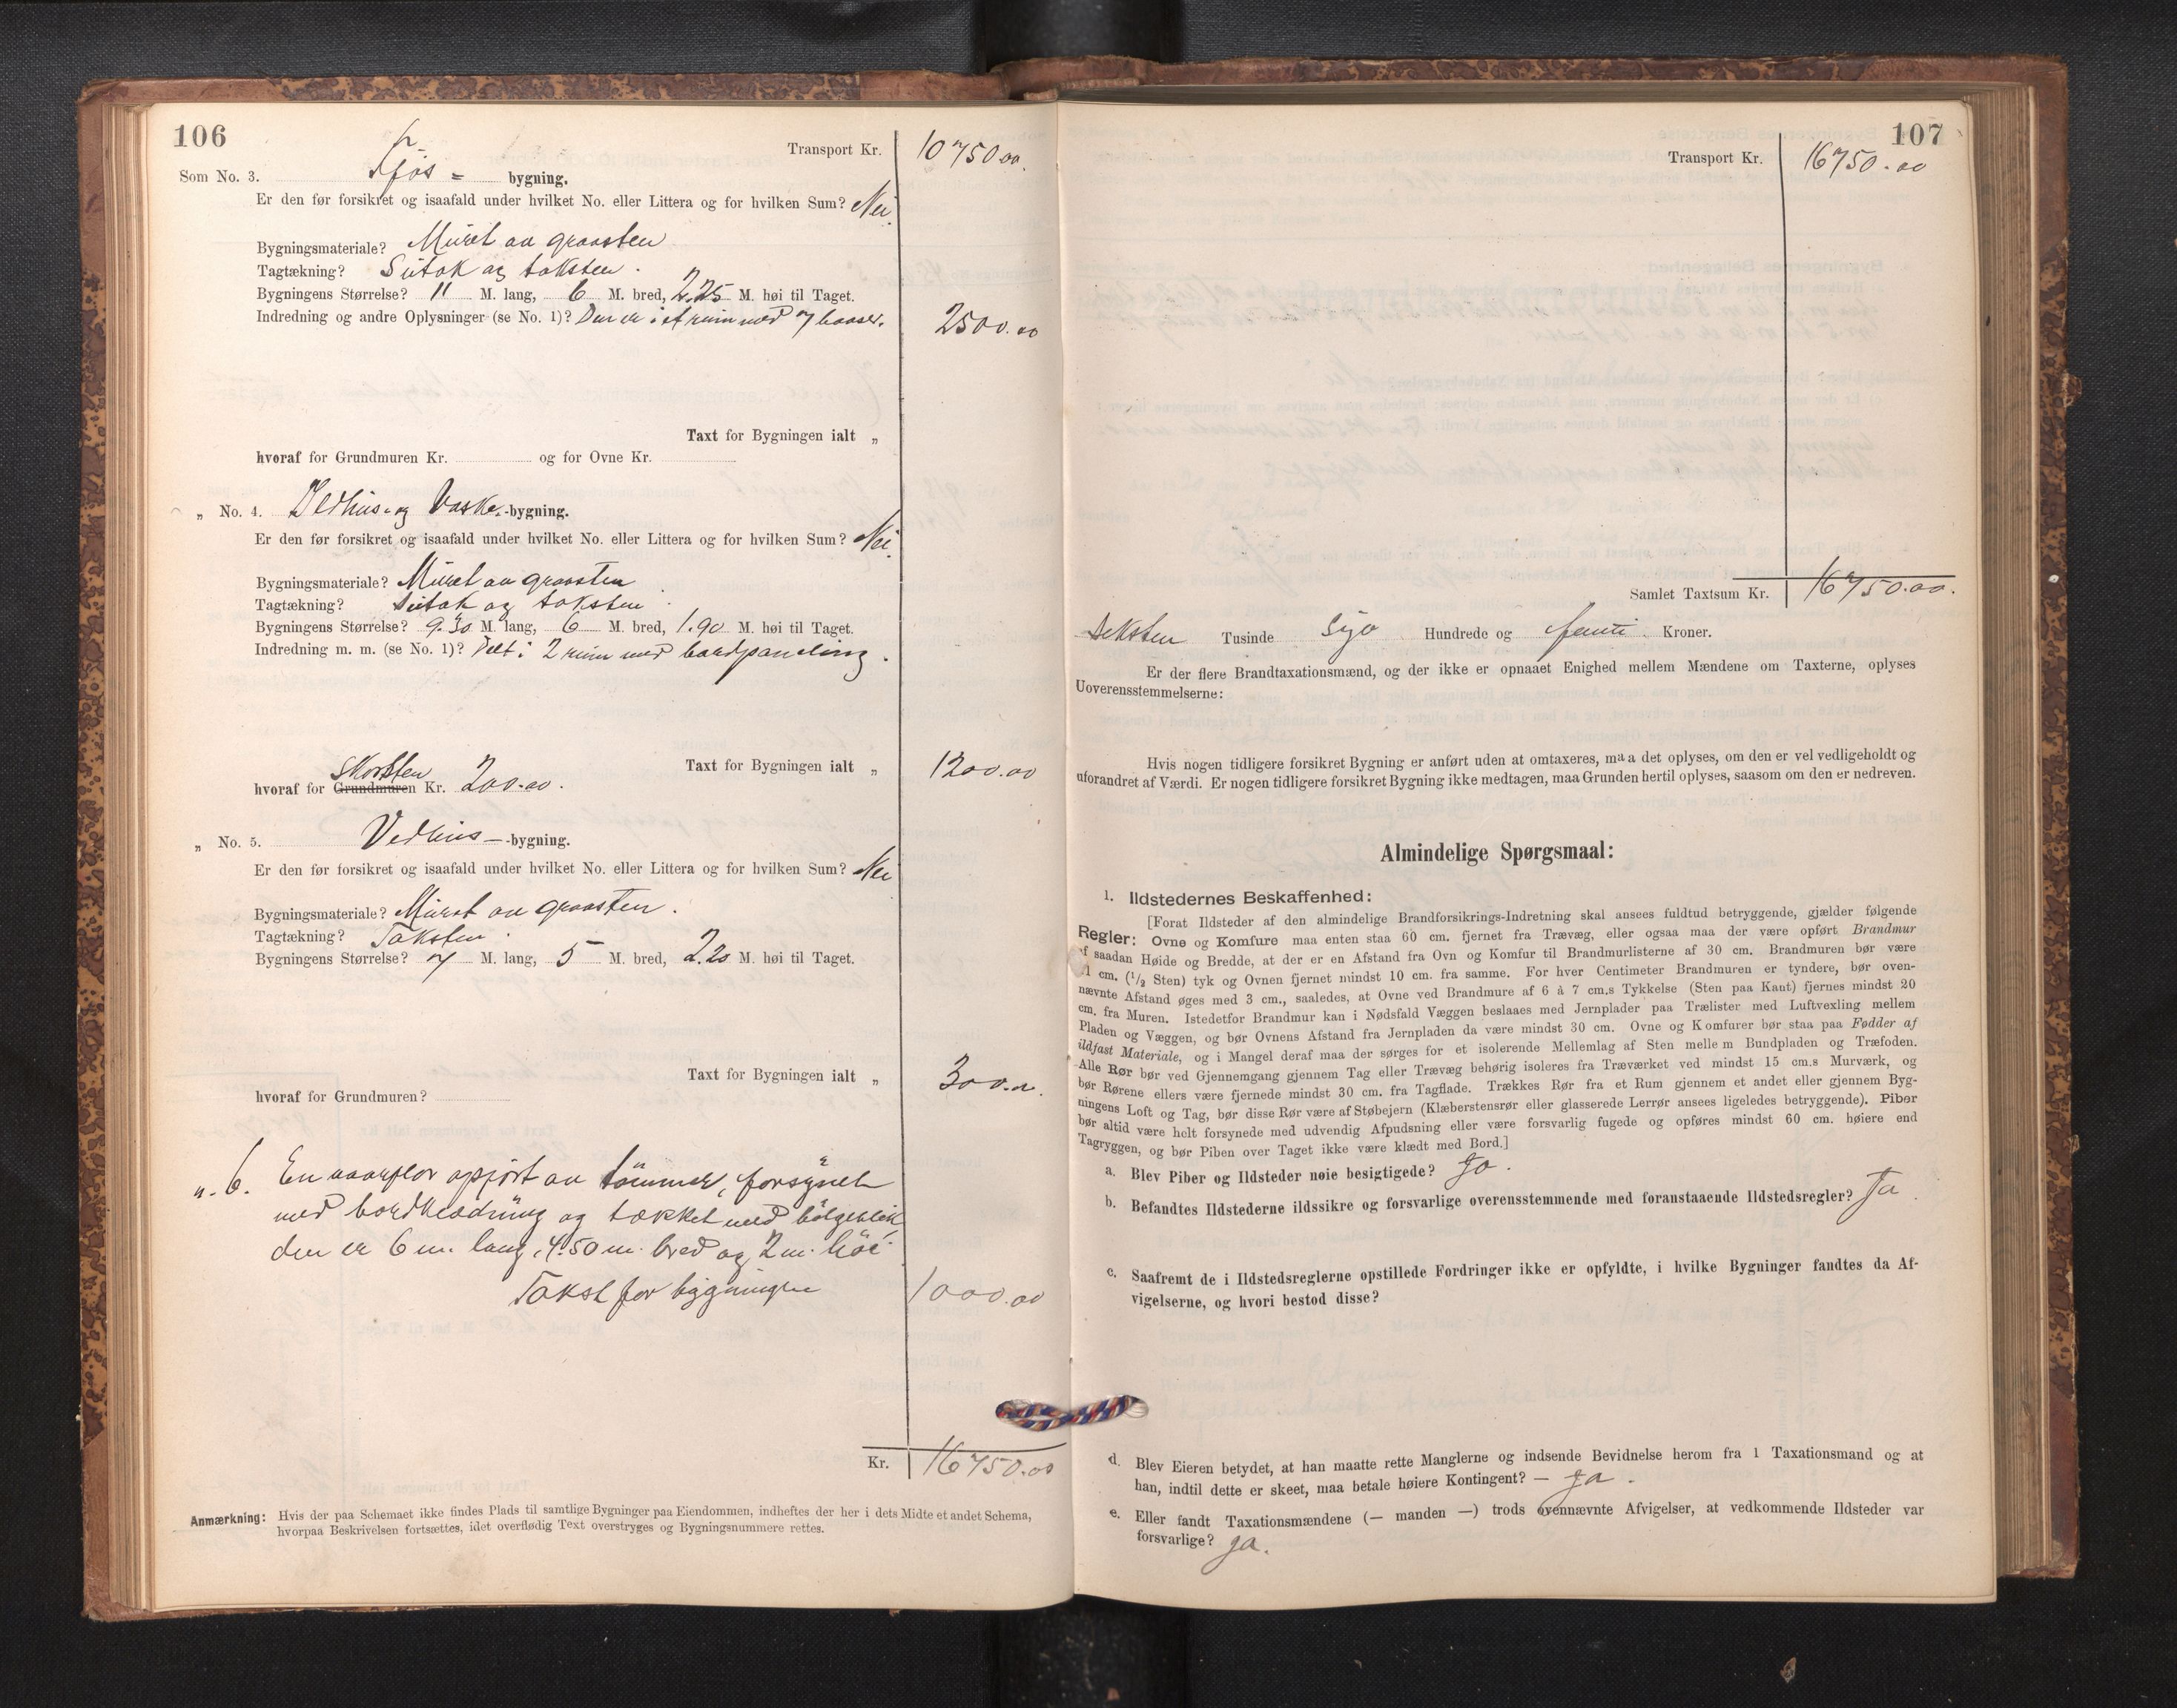 106
Transport Kr. 10750.00.
Som No. 3. Fjøs = bygning.
Er den før forsikret og isaafald under hvilket No. eller Littera og for hvilken Sum? Nei.
Bygningsmateriale? Muret av graasten
Tagtækning? Sutak og taksten.
Bygningens Størrelse? 11 M. lang, 6 M. bred, 2.25 M. høi til Taget.
Indredning og andre Oplysninger (se No. 1)? Den er i et rum med 7 baaser. 2500.00
Taxt for Bygningen ialt „
hvoraf for Grundmuren Kr. og for Ovne Kr.
„ No. 4. Ildhus- og Vaske-bygning.
Er den før forsikret og isaafald under hvilket No. eller Littera og for hvilken Sum? Nei.
Bygningsmateriale? Muret av graasten
Tagtækning? Sutak og taksten.
Bygningens Størrelse? 9.30 M. lang, 6 M. bred, 1.90 M. høi til Taget.
Indredning m. m. (se No. 1)? Delt i 2 rum med bordpaneling.
Taxt for Bygningen ialt „ 1200.00
skorsten
hvoraf for Grundmuren Kr. 200.00.
„ No. 5. Vedhus- -bygning.
Er den før forsikret og isaafald under hvilket No. eller Littera og for hvilken Sum? Nei
Bygningsmateriale? Muret av graasten.
Tagtækning? Taksten.
Bygningens Størrelse? 7 M. lang, 5 M. bred, 2.20 M. høi til Taget.
Taxt for Bygningen ialt „ 300.00.
hvoraf for Grundmuren?
„. 6. En vaarflor opført av tømmer, forsynet
med bordklædning og tækket med bølgeblik
den er 6 m. lang, 4.50 m. bred og 2 m. høi.
Takst for bygningen 1000.00
Kr. 16750.00
Anmærkning: Hvis der paa Schemaet ikke findes Plads til samtlige Bygninger paa Eiendommen, indheftes der her i dets Midte et andet Schema,
hvorpaa Beskrivelsen fortsættes, idet overflødig Text overstryges og Bygningsnummere rettes.
107
Transport Kr. 16750.00
Samlet Taxtsum Kr. 16750.00.
Seksten Tusinde Syv Hundrede og femti Kroner.
Er der flere Brandtaxationsmænd, og der ikke er opnaaet Enighed mellem Mændene om Taxterne, oplyses
Uoverensstemmelserne:
Hvis nogen tidligere forsikret Bygning er anført uden at omtaxeres, maa det oplyses, om den er vel vedligeholdt og
uforandret af Værdi. Er nogen tidligere forsikret Bygning ikke medtagen, maa Grunden hertil oplyses, saasom om den er nedreven.
Almindelige Spørgsmaal:
1. Ildstedernes Beskaffenhed:
[Forat Ildsteder af den almindelige Brandforsikrings-Indretning skal ansees fuldtud betryggende, gjælder følgende
Regler: Ovne og Komfure maa enten staa 60 cm. fjernet fra Trævæg, eller ogsaa maa der være opført Brandmur
af saadan Høide og Bredde, at der er en Afstand fra Ovn og Komfur til Brandmurlisterne af 30 cm. Brandmuren bør være
11 cm. (1/2 Sten) tyk og Ovnen fjernet mindst 10 cm. fra samme. For hver Centimeter Brandmuren er tyndere, bør oven-
nævnte Afstand øges med 3 cm., saaledes, at Ovne ved Brandmure af 6 à 7 cm.s Tykkelse (Sten paa Kant) fjernes mindst 20
cm. fra Muren. Istedetfor Brandmur kan i Nødsfald Væggen beslaaes med Jernplader paa Trælister med Luftvexling mellem
Pladen og Væggen, og bør Ovnens Afstand fra Jernpladen da være mindst 30 cm. Ovne og Komfurer bør staa paa Fødder af
ildfast Materiale, og i Mangel deraf maa der sørges for et isolerende Mellemlag af Sten mellem Bundpladen og Træfoden.
Alle Rør bør ved Gjennemgang gjennem Tag eller Trævæg behørig isoleres fra Træværket ved mindst 15 cm.s Murværk, og
bør Rørene ellers være fjernede mindst 30 cm. fra Tagflade. Trækkes Rør fra et Rum gjennem et andet eller gjennem Byg-
ningens Loft og Tag, bør disse Rør være af Støbejern (Klæberstensrør eller glasserede Lerrør ansees ligeledes betryggende). Piber
bør altid være helt forsynede med udvendig Afpudsning eller være forsvarlig fugede og opføres mindst 60 cm. høiere end
Tagryggen, og bør Piben over Taget ikke være klædt med Bord.]
a. Blev Piber og Ildsteder nøie besigtigede? Ja.
b. Befandtes Ildstederne ildssikre og forsvarlige overensstemmende med foranstaaende Ildstedsregler? Ja.
c. Saafremt de i Ildstedsreglerne opstillede Fordringer ikke er opfyldte, i hvilke Bygninger fandtes da Af-
vigelserne, og hvori bestod disse?
d. Blev Eieren betydet, at han maatte rette Manglerne og indsende Bevidnelse herom fra 1 Taxationsmand og at
han, indtil dette er skeet, maa betale høiere Kontingent? — Ja.
e. Eller fandt Taxationsmændene (— manden —) trods ovennævnte Afvigelser, at vedkommende Ildsteder var
forsvarlige? Ja.